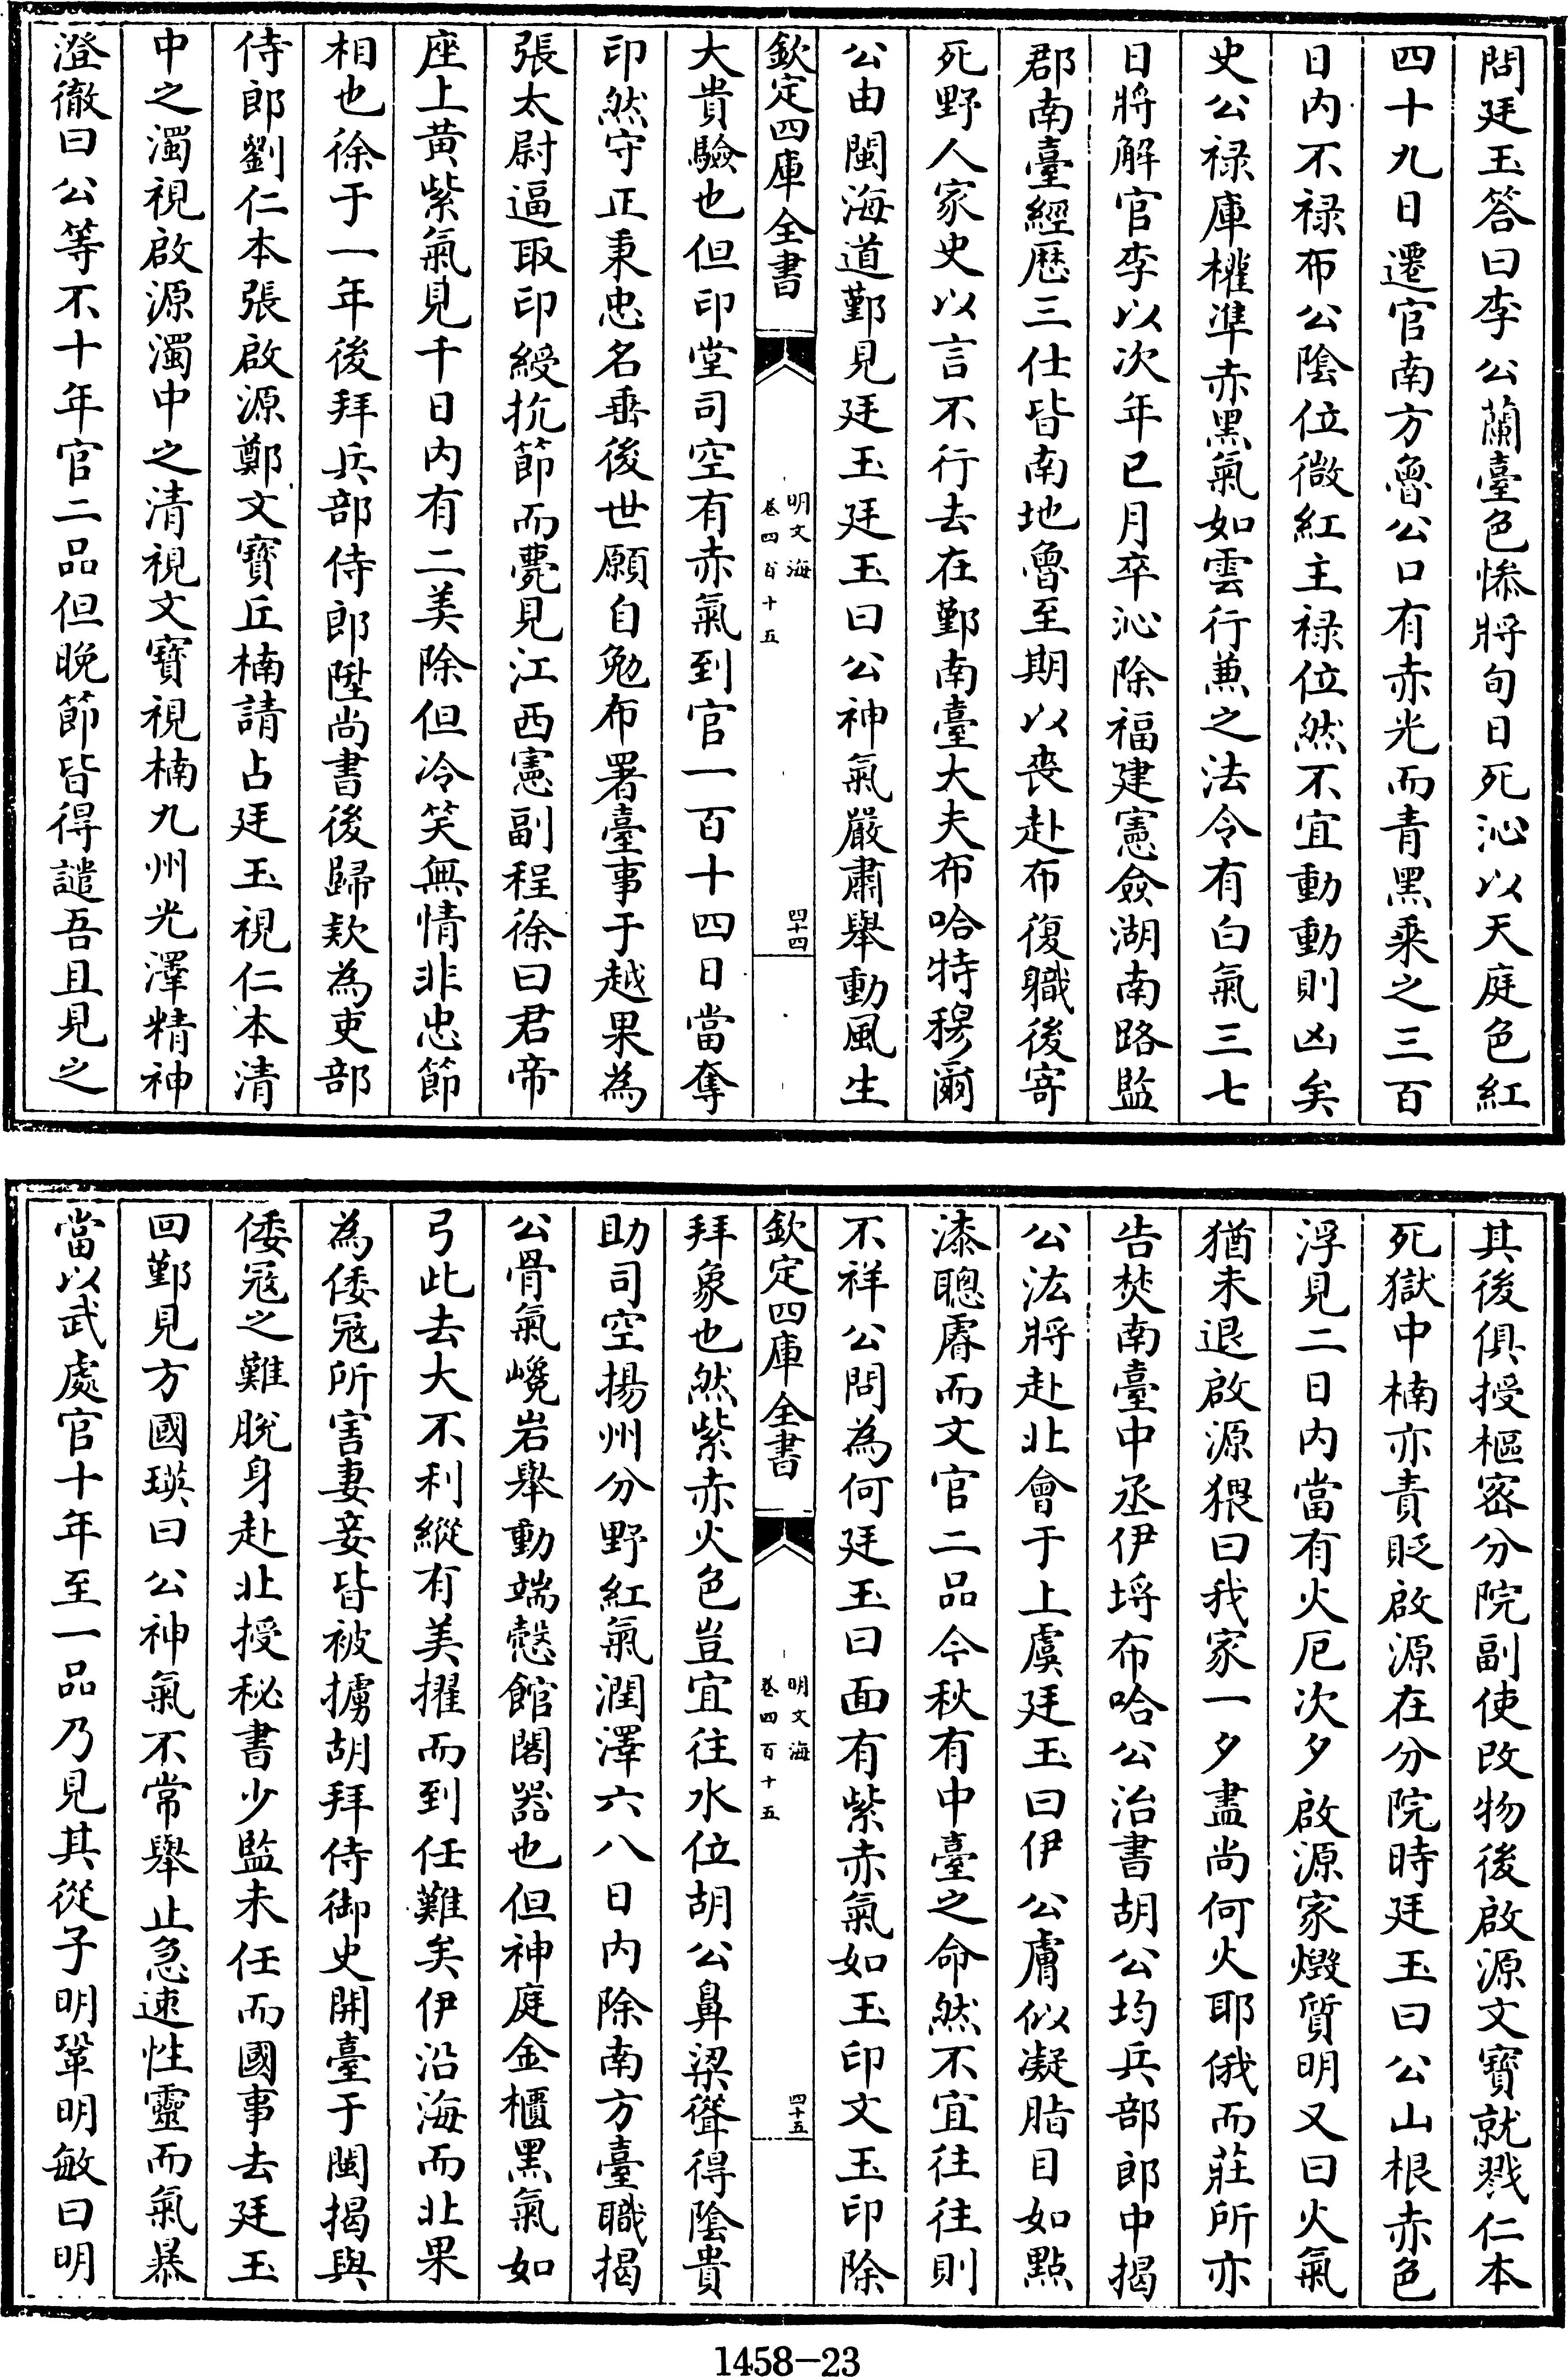 問廷玉答曰李公蘭臺色慘將旬日死沁以天庭色紅
四十九日遷官南方魯公口有赤光而青黑乘之三百
日内不禄布公陰位微紅主禄位然不宜動動則凶矣
史公禄庫權準赤黑氣如雲行兼之法令有白氣三七
日將解官李以次年已月卒沁除福建憲僉湖南路監
郡南臺經歷三仕皆南地魯至期以喪赴布復職後寄
死野人家史以言不行去在鄞南臺大夫布哈特穆爾
公由閩海道鄞見廷玉廷玉曰公神氣嚴肅舉動風生
欽定四庫全書
明文海
卷四百十五
四十四
大貴驗也但印堂司空有赤氣到官一百十四日當奪
印然守正秉忠名垂後世願自勉布署臺事于越果為
張太尉逼取印綬抗節而薨見江西憲副程徐曰君帝
座上黄紫氣見千日内有二美除但冷笑無情非忠節
相也徐于一年後拜兵部侍郎陞尚書後歸欵為吏部
侍郎劉仁本張啟源鄭文寶丘楠請占廷玉視仁本清
中之濁視啟源濁中之清視文寶視楠九州光澤精神
澄徹曰公等不十年官二品但晚節皆得譴吾且見之
其後俱授樞密分院副使改物後啟源文寶就戮仁本
死獄中楠亦責貶啟源在分院時廷玉曰公山根赤色
浮見二日内當有火厄次夕啟源家燬質明又曰火氣
猶未退啟源猥曰我家一夕盡尚何火耶俄而莊所亦
告焚南臺中丞伊埒布哈公治書胡公均兵部郎中揭
公汯將赴北會于上虞廷玉曰伊公膚似凝脂目如點
漆聰睿而文官二品今秋有中臺之命然不宜往往則
不祥公問為何廷玉曰面有紫赤氣如玉印文玉印除
欽定四庫全書
明文海
卷四百十五
四十五
拜象也然紫赤火色豈宜往水位胡公鼻梁聳得陰貴
助司空揚州分野紅氣潤澤六八日内除南方臺職揭
公骨氣巉岩舉動端慤館閣器也但神庭金櫃黑氣如
弓此去大不利縱有美擢而到任難矣伊沿海而北果
為倭冦所害妻妾皆被擄胡拜侍御史開臺于閩揭與
倭冦之難脱身赴北授秘書少監未任而國事去廷玉
回鄞見方國瑛曰公神氣不常舉止急速性靈而氣暴
當以武處官十年至一品乃見其從子明鞏明敏曰明
1458-23